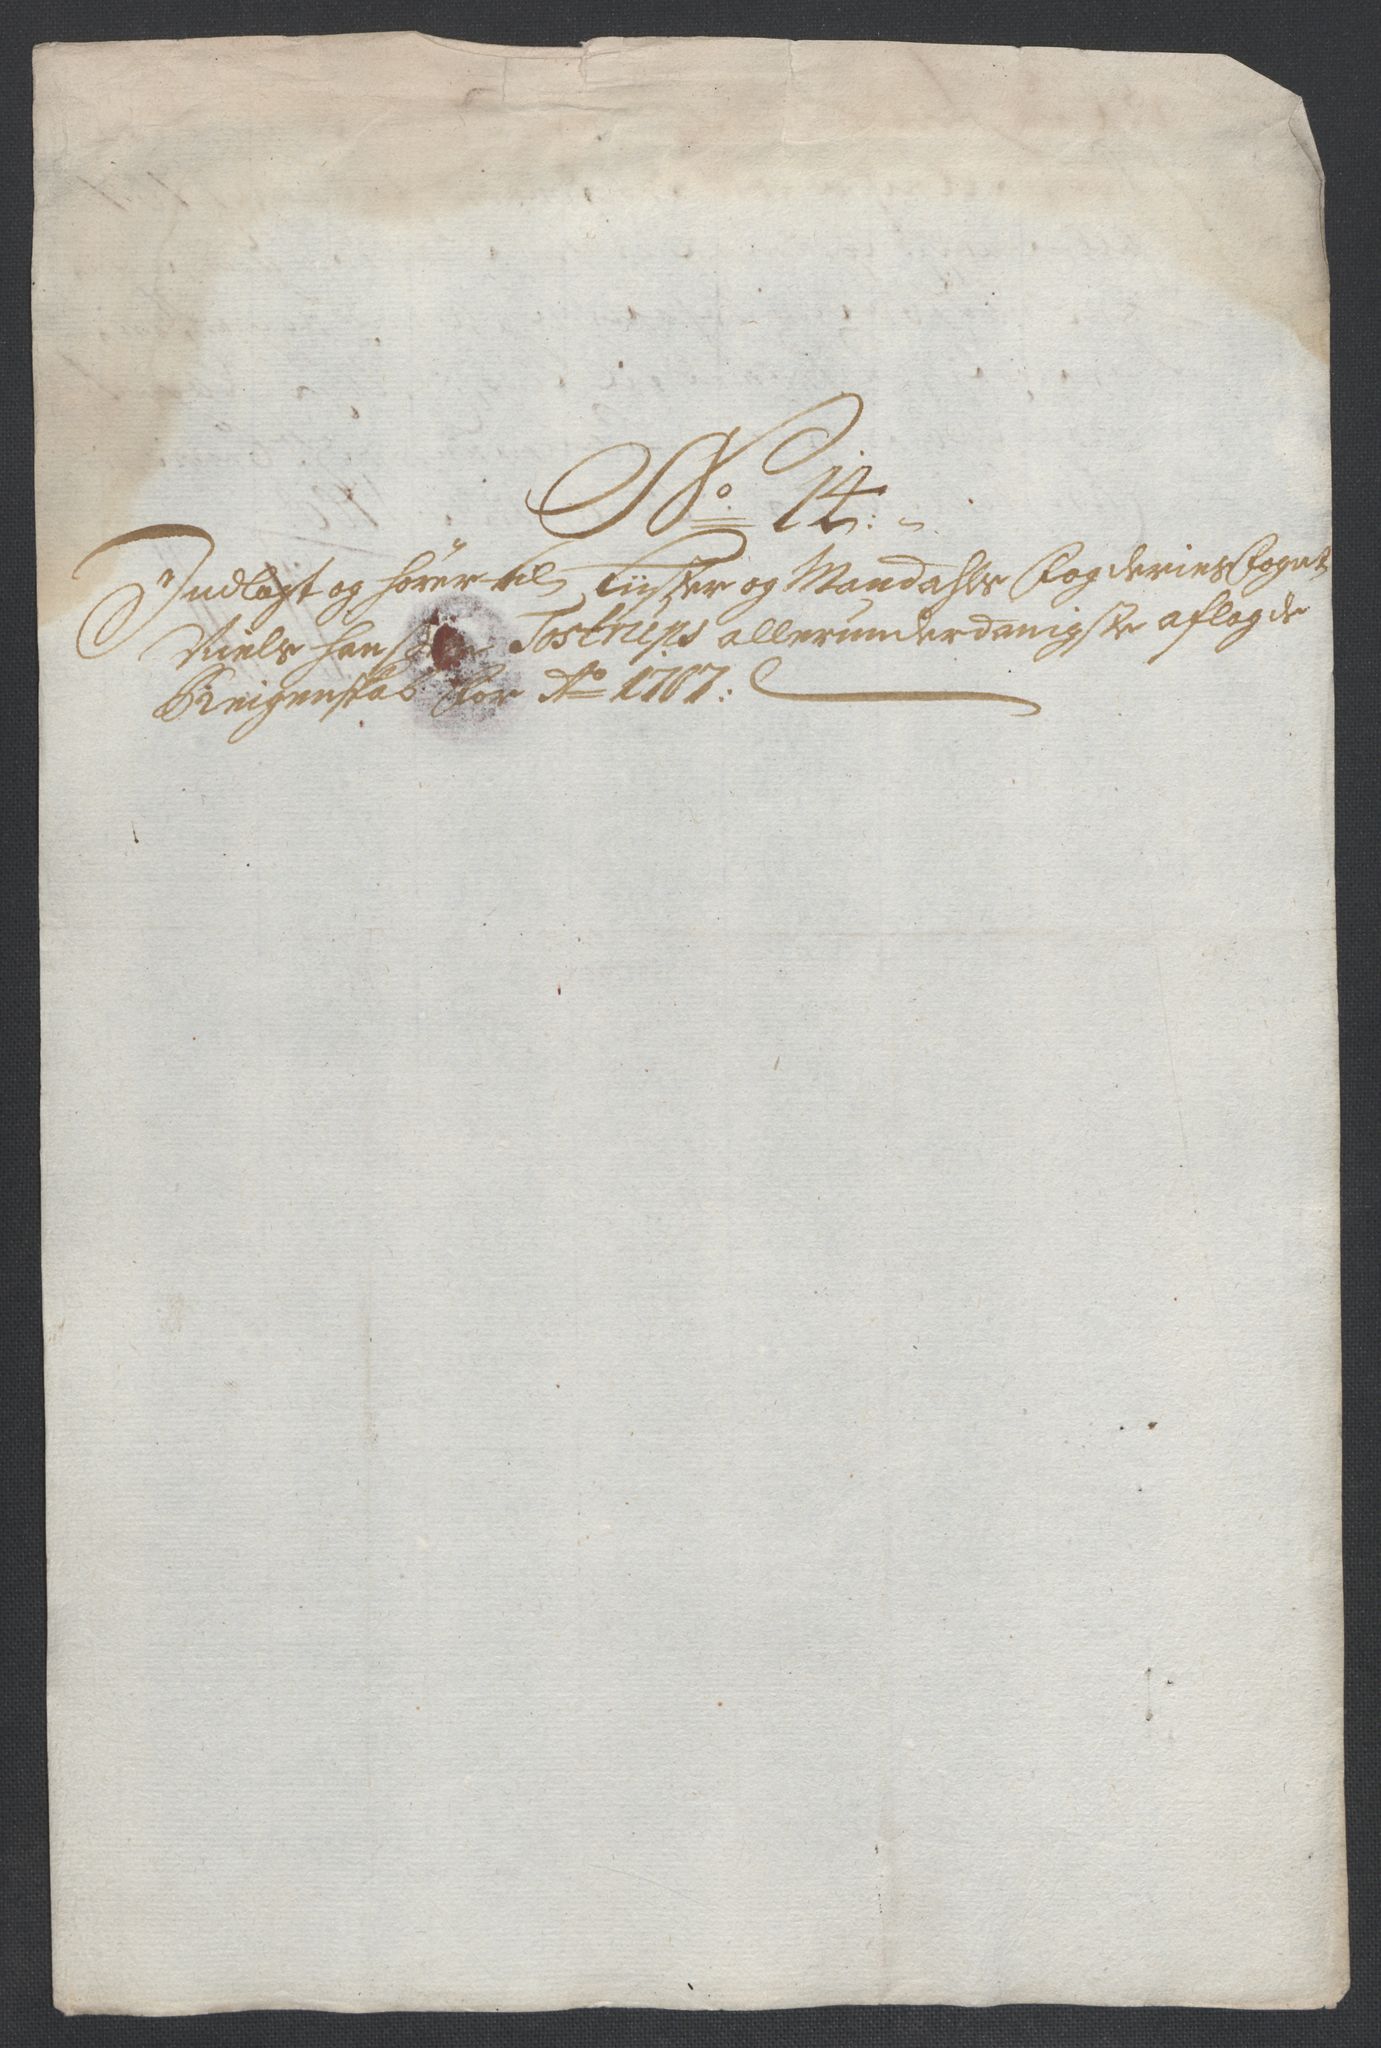 No 14:
Indlagt og hörer til Lister og Mandahls Fogderies Foget
Niels Hansen Tostrups allerunderdanigste aflagde
Reigenskab for Ao 1707: